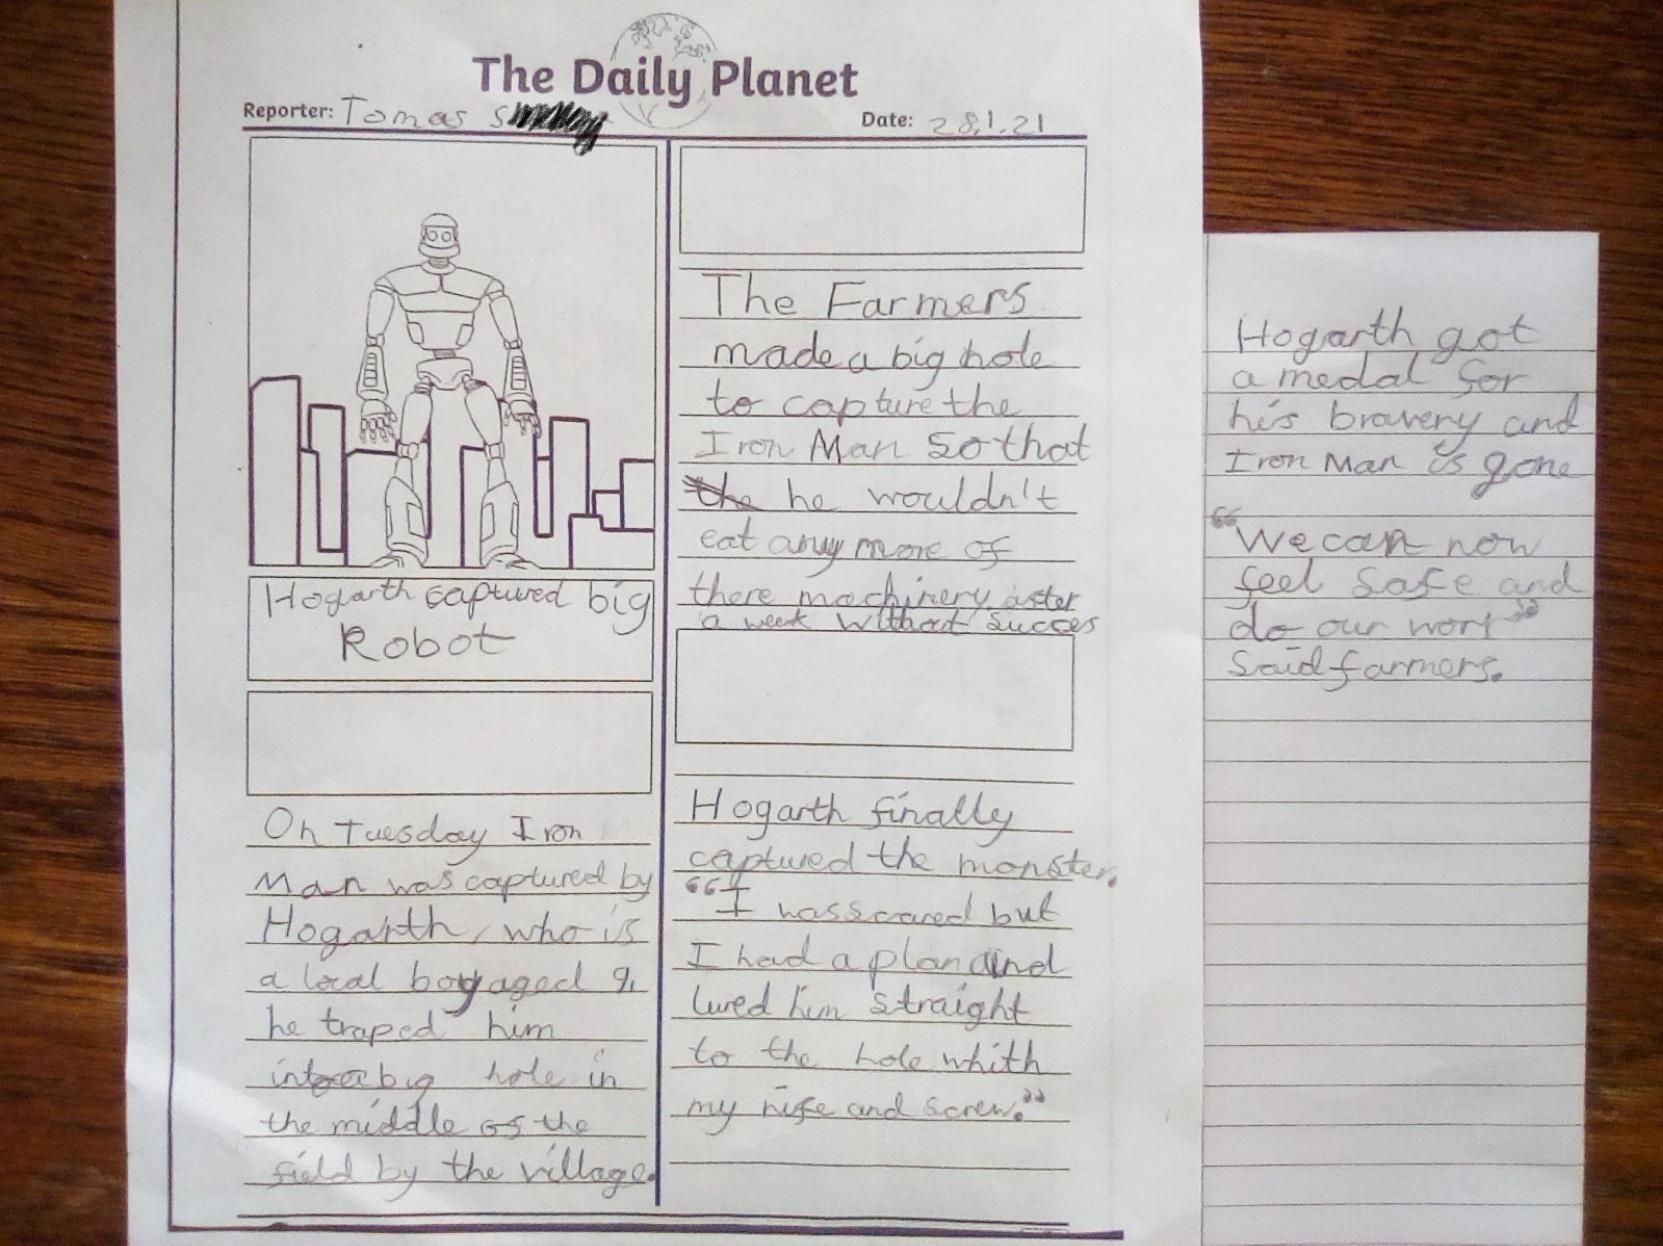 The Daily Planet
Reporter: Tomas
Date: 28.1.21
Hogarth captured big
Robot
On Tuesday Iron
Man was captured by
Hogarth, who is
a local boy aged 9,
he traped him
into a big hole in
the middle of the
field by the village.
The Farmers
made a big hole
to capture the
Iron Man so that
he wouldn't
eat any more of
there machinery after
a week without succes
Hogarth finally
captured the monster.
"I was scared but
I had a plan and
lured him straight
to the hole whith
my nife and screw."
Hogarth got
a medal for
his bravery and
Iron Man is gone
"We can now
feel safe and
do our work"
said farmers.